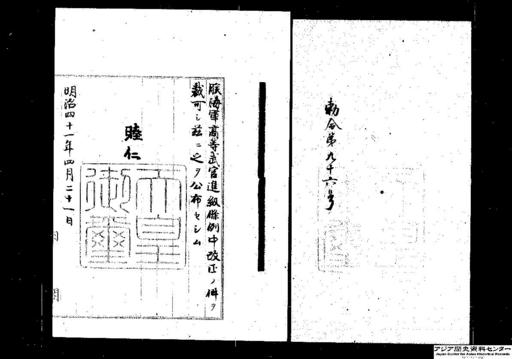 勅令第九十六号
朕海軍高等武官進級條例中改正ノ件ヲ
裁可シ茲ニ之ヲ公布セシム
睦仁
天皇御璽
明治四十一年四月二十一日
アジア歴史資料センター
Japan Center for Asian Historical Records